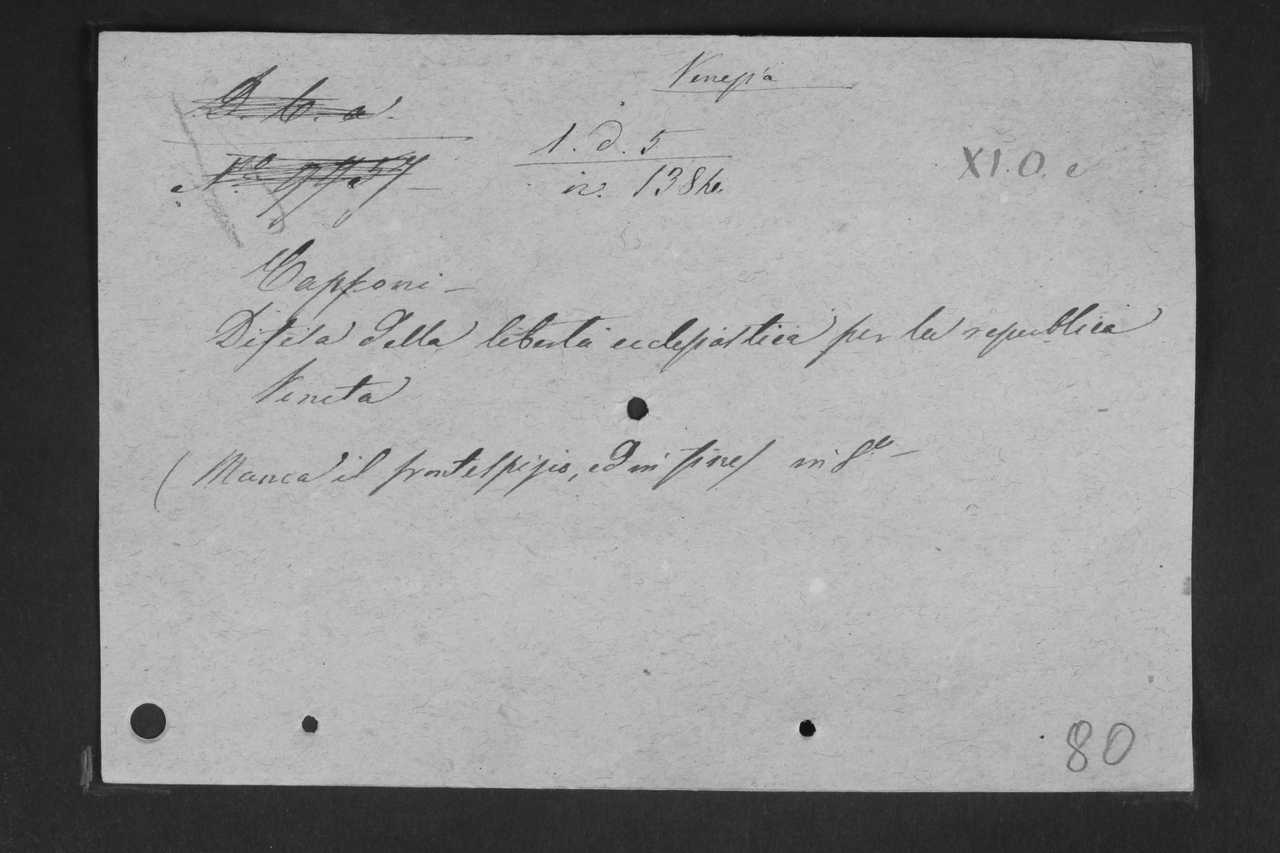 Venezia
D. 6. a.
1. d. 5
XI. O. e
N.º
n. 1384.
Capponi –
Difesa della libertà ecclesiastica per la republica
Veneta
(Manca il frontespizio, ed in fine) in 8.º –
80